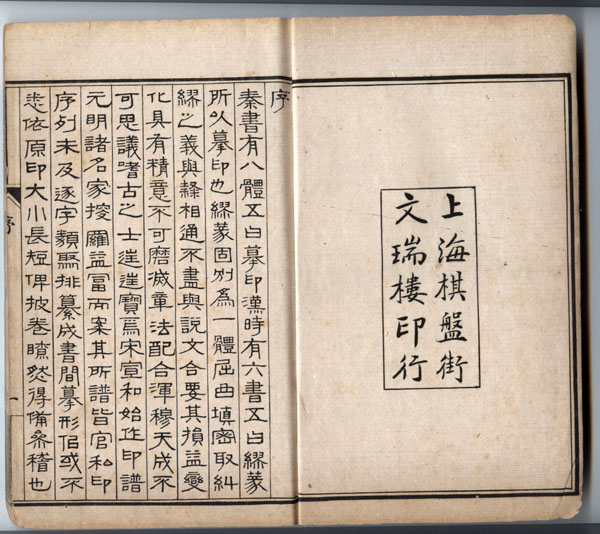 上海棋盤街
文瑞樓印行
序
秦書有八體五曰摹印漢時有六書五曰繆篆
所以摹印也繆篆固別爲一體屈曲填密取糾
繆之義與隸相通不盡與說文合要其損益變
化具有精意不可磨滅章法配合渾穆天成不
可思議嗜古之士往往寶焉宋宣和始作印譜
元明諸名家搜羅益富而案其所譜皆官私印
序列未及逐字類聚排纂成書間摹形佀或不
悉依原印大小長短俾披卷瞭然得備參稽也
序
一